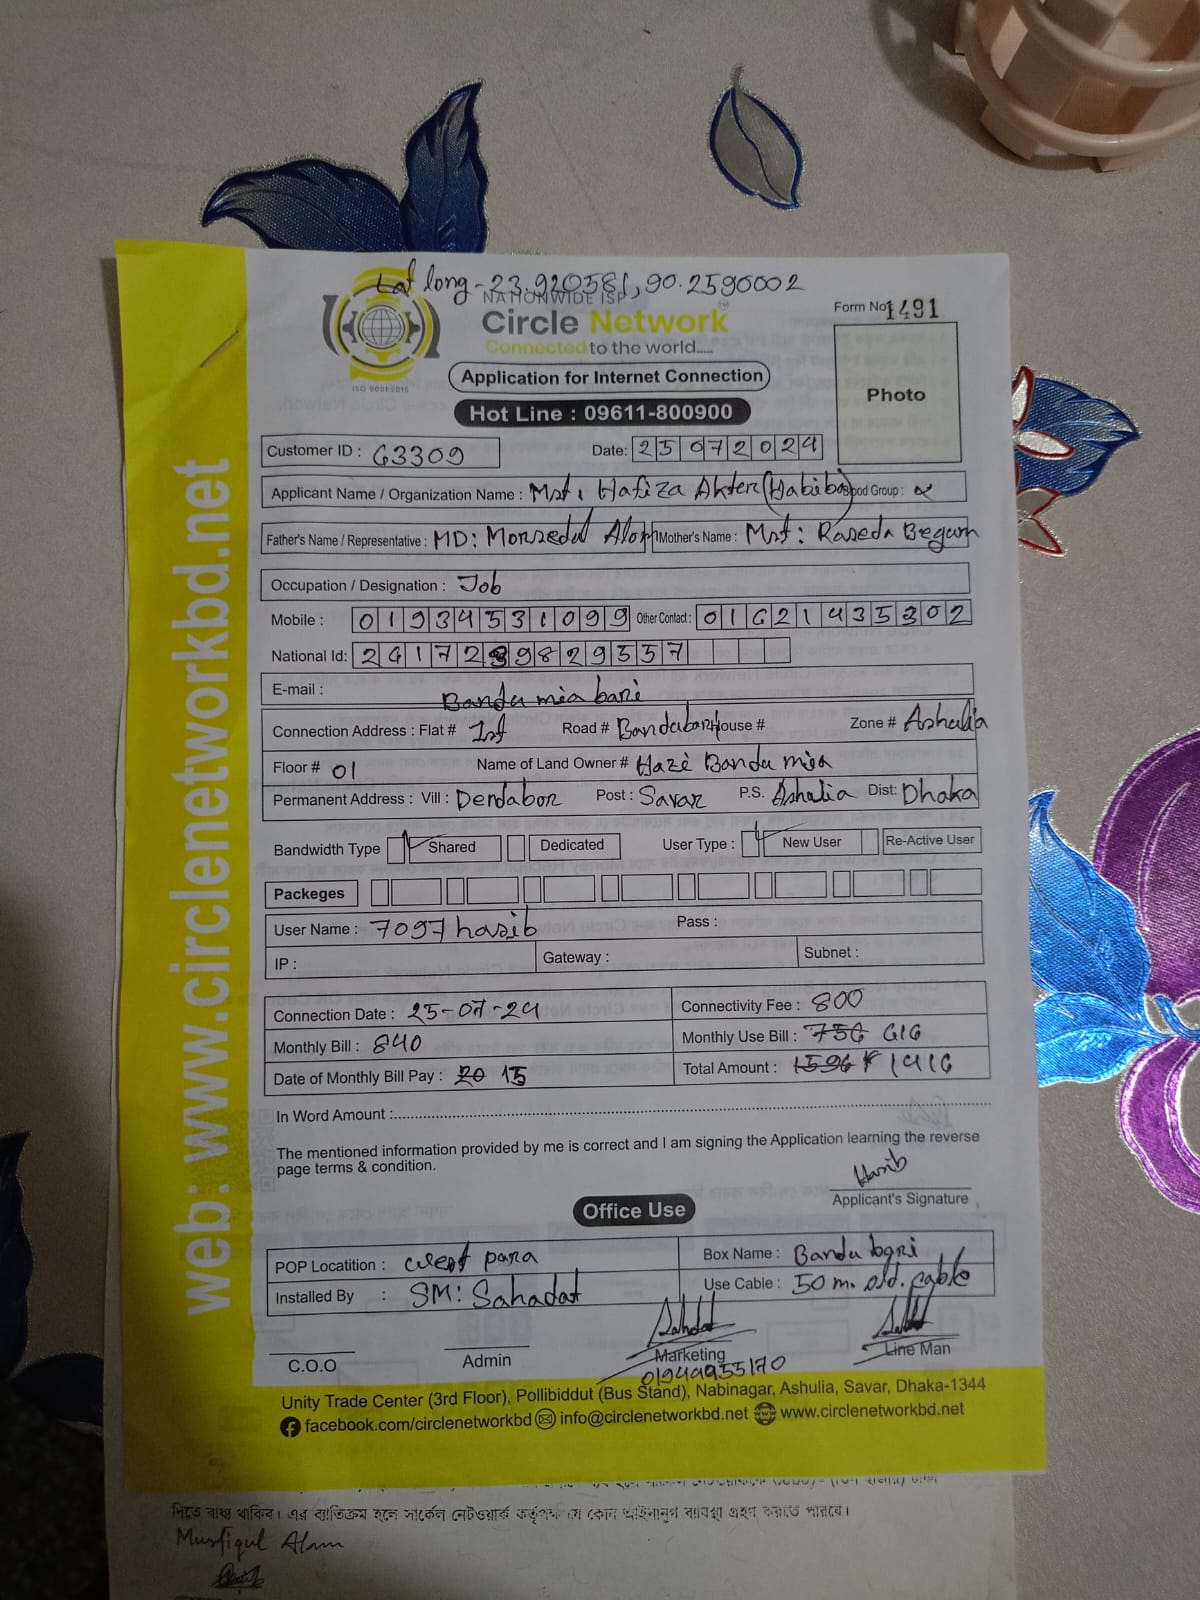 Lat long - 23.920581, 90.2590002
NATIONWIDE ISP
Circle Network
Connected to the world.....
ISO 9001:2015
Form No: 1491
Photo
Application for Internet Connection
Hot Line : 09611-800900
Customer ID : 63309
Date: 25072024
Applicant Name / Organization Name : Mst. Hafiza Akter (Habiba) Blood Group :
Father's Name / Representative : MD: Morsedul Alom Mother's Name : Mst: Raseda Begum
Occupation / Designation : Job
Mobile : 01934531099 Other Contact : 01621435302
National Id: 2617239829557
E-mail :
Bandu mia bari
Connection Address : Flat # 1st Road # Bandubari House # Zone # Ashulia
Floor # 01 Name of Land Owner # Hazi Bandu mia
Permanent Address : Vill : Dendabor Post : Savar P.S. Ashulia Dist: Dhaka
Bandwidth Type Shared Dedicated User Type : New User Re-Active User
Packeges
User Name : 7097hasib Pass :
IP : Gateway : Subnet :
Connection Date : 25-07-24 Connectivity Fee : 800
Monthly Bill : 840 Monthly Use Bill : 756 616
Date of Monthly Bill Pay : 20 15 Total Amount : 1596 1416
In Word Amount :
The mentioned information provided by me is correct and I am signing the Application learning the reverse
page terms & condition.
Hasib
Applicant's Signature
Office Use
POP Locatition : West para Box Name : Bandu bari
Installed By : SM: Sahadat Use Cable : 50 m. old. cable
Sahdat
C.O.O Admin Marketing Line Man
01949955170
Unity Trade Center (3rd Floor), Pollibiddut (Bus Stand), Nabinagar, Ashulia, Savar, Dhaka-1344
facebook.com/circlenetworkbd info@circlenetworkbd.net www.circlenetworkbd.net
web: www.circlenetworkbd.net
দিতে বাধ্য থাকিব। এর ব্যতিক্রম হলে সার্কেল নেটওয়ার্ক কর্তৃপক্ষ যে কোন আইনানুগ ব্যবস্থা গ্রহণ করতে পারবে।
Musfiqul Alam